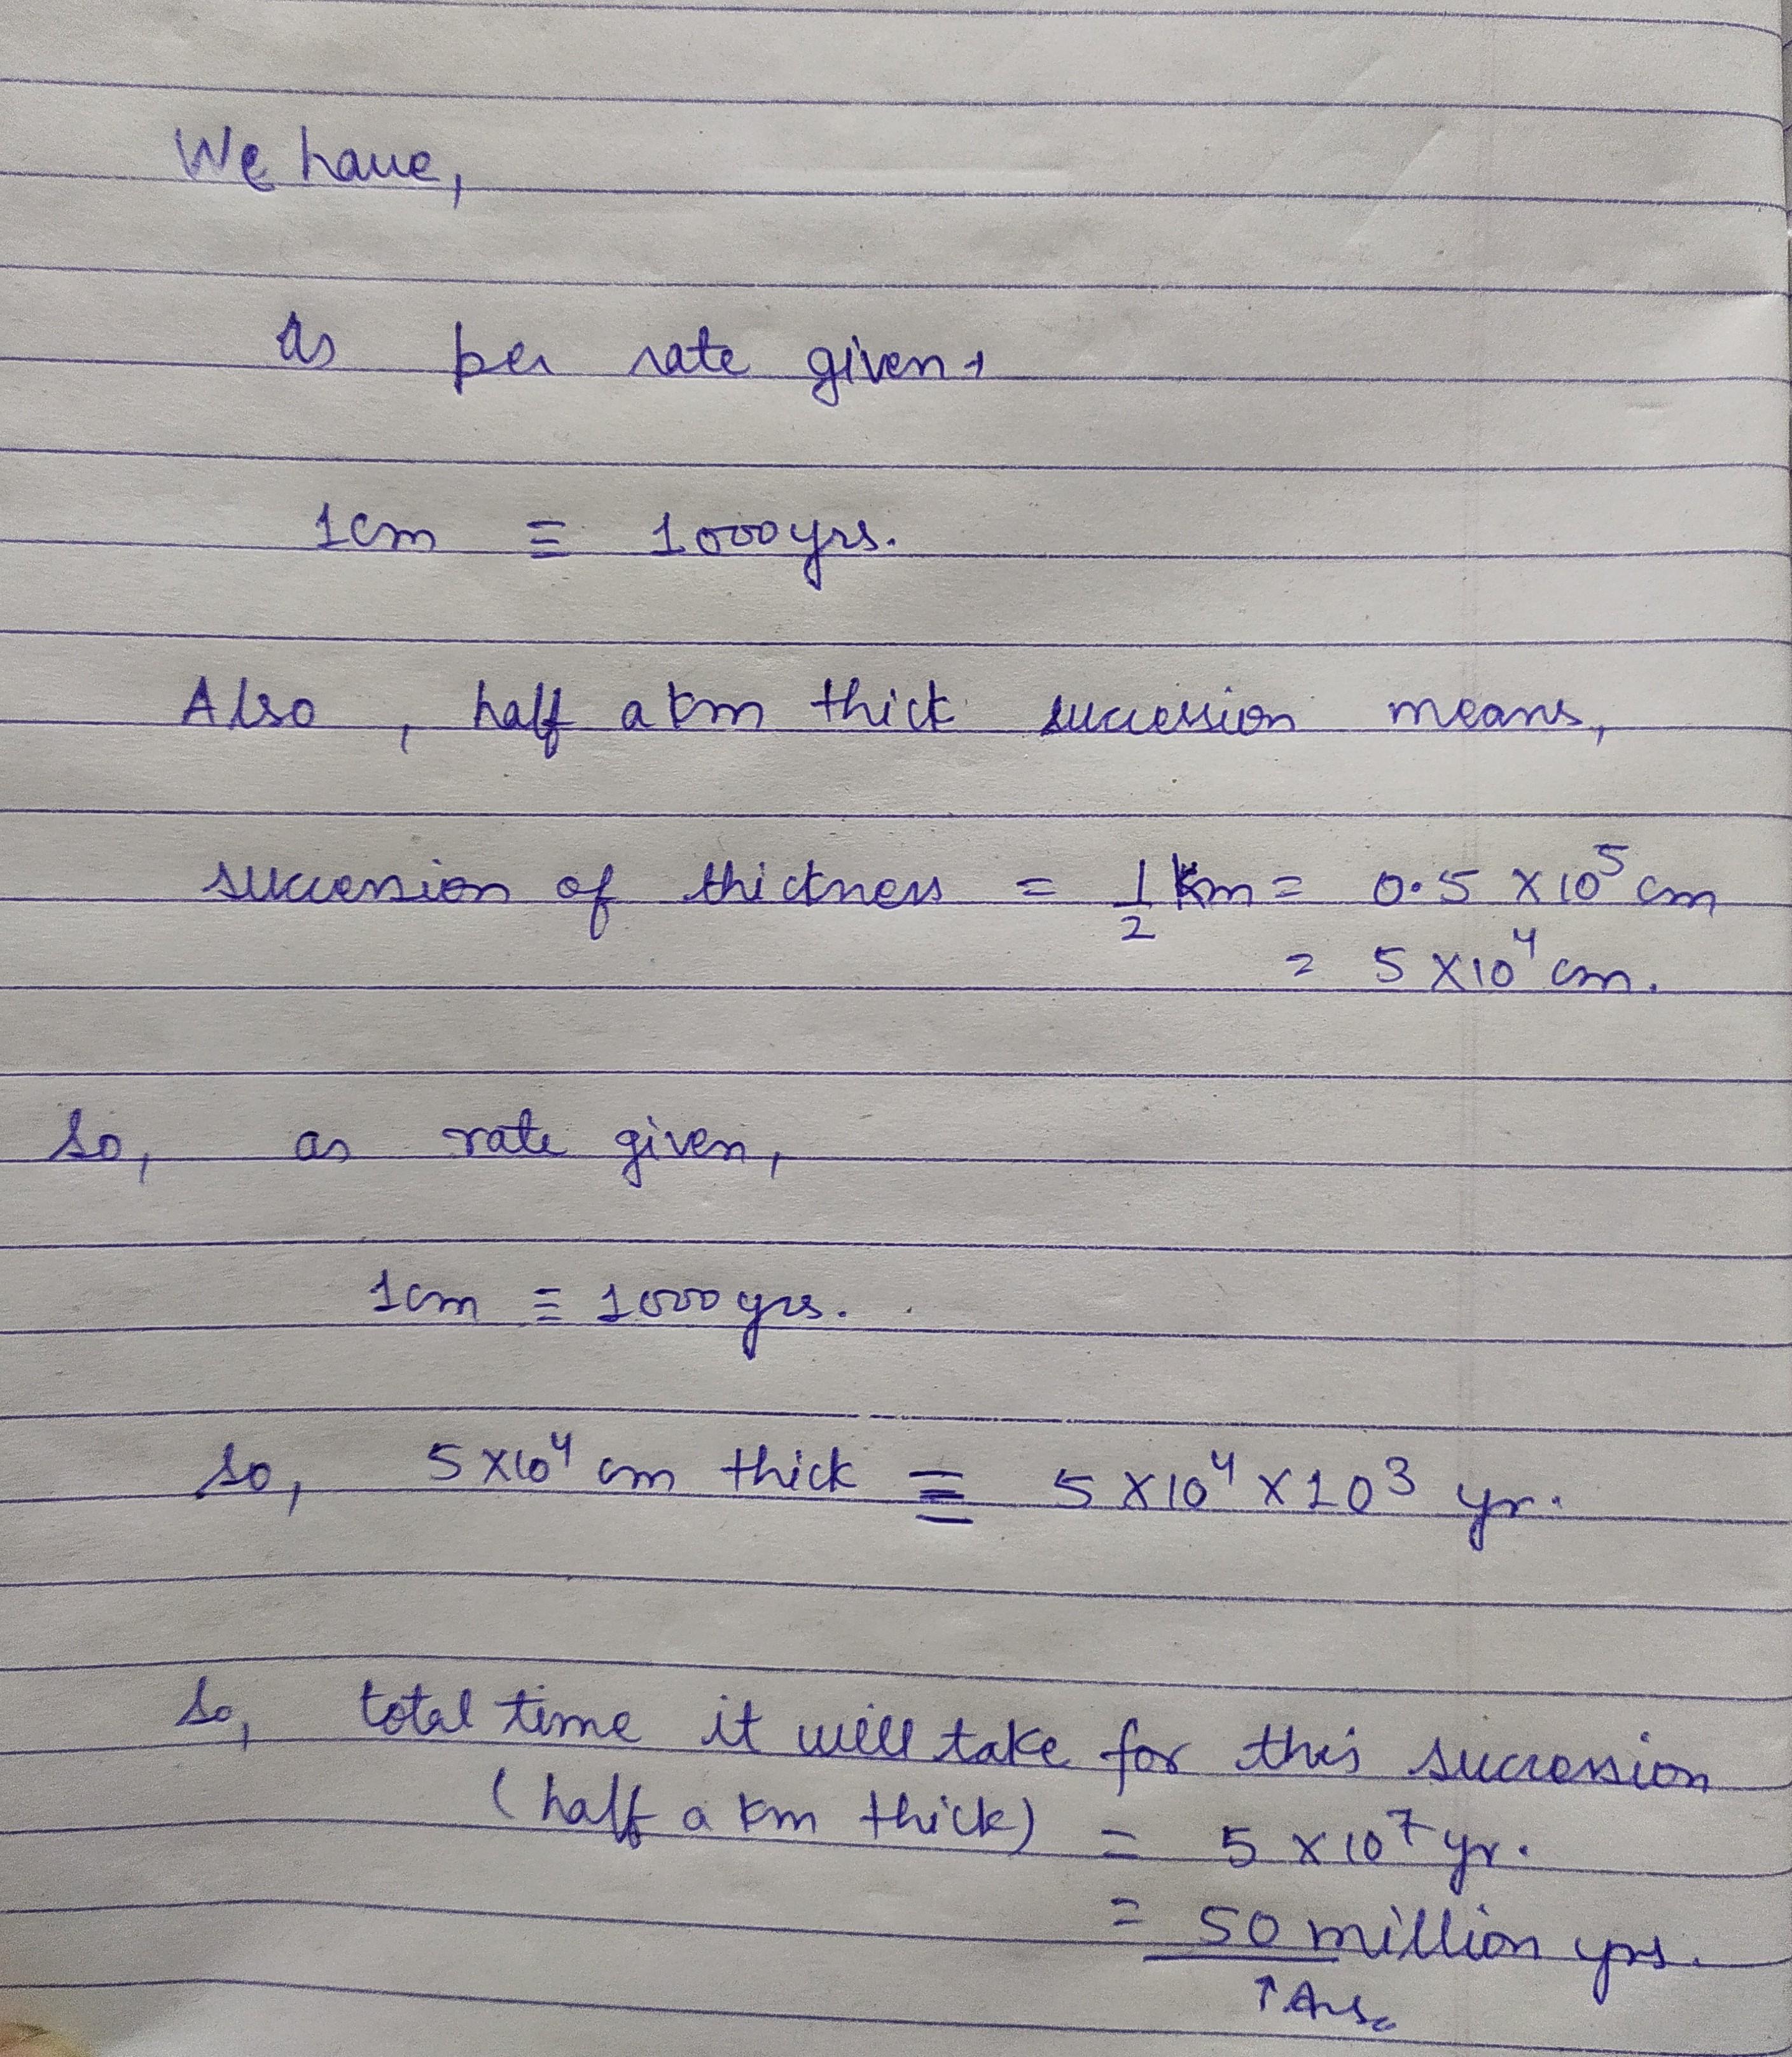 We have,
As per rate given,
1cm ≡ 1000yrs.
Also, half a km thick succession means,
succession of thickness = 1/2 km = 0.5 × 10⁵ cm
= 5 × 10⁴ cm.
So, as rate given,
1cm ≡ 1000yrs.
so, 5×10⁴ cm thick ≡ 5 × 10⁴ × 10³ yr.
So, total time it will take for this succession
(half a km thick) = 5 × 10⁷ yr.
= 50 million yrs.
↑Ans.